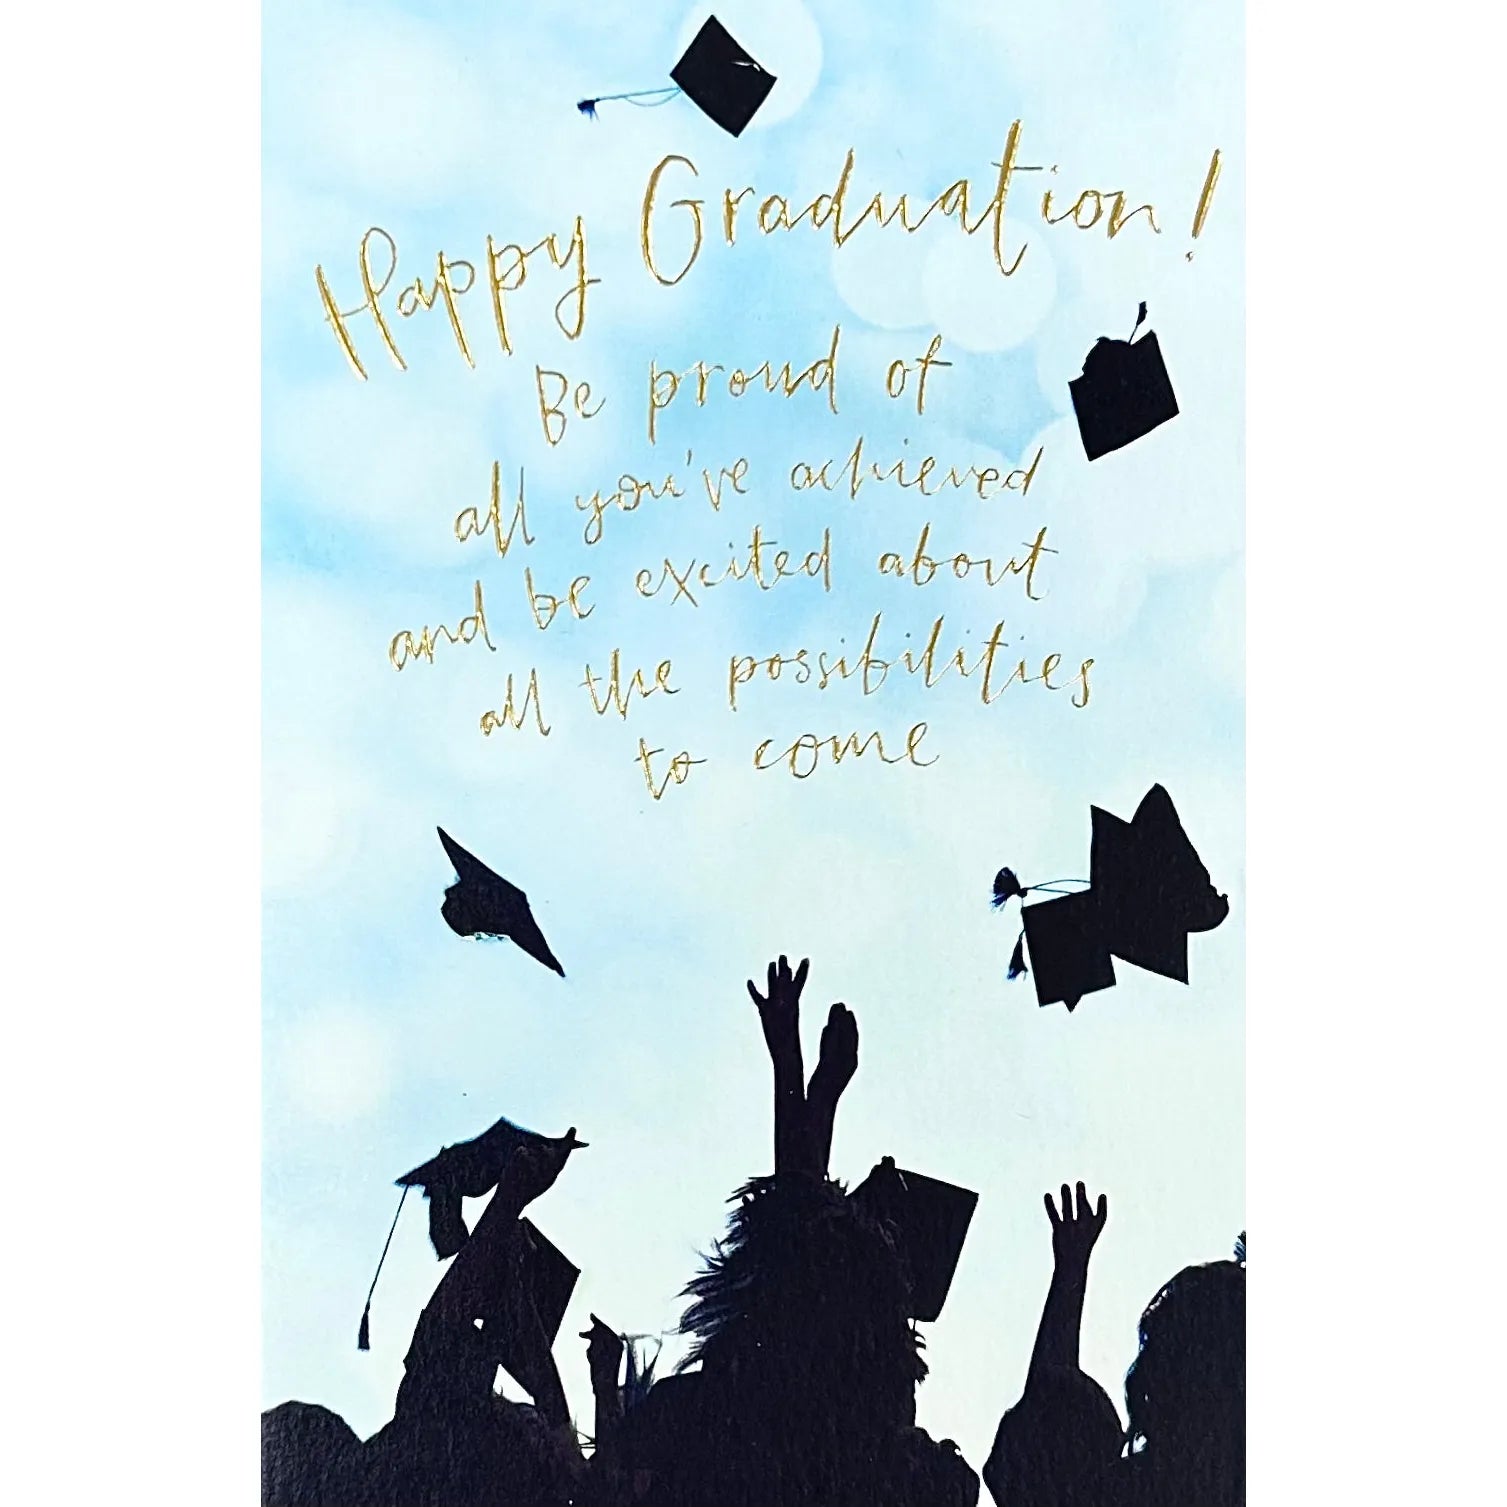 Happy Graduation!
Be proud of
all you've achieved
and be excited about
all the possibilities
to come